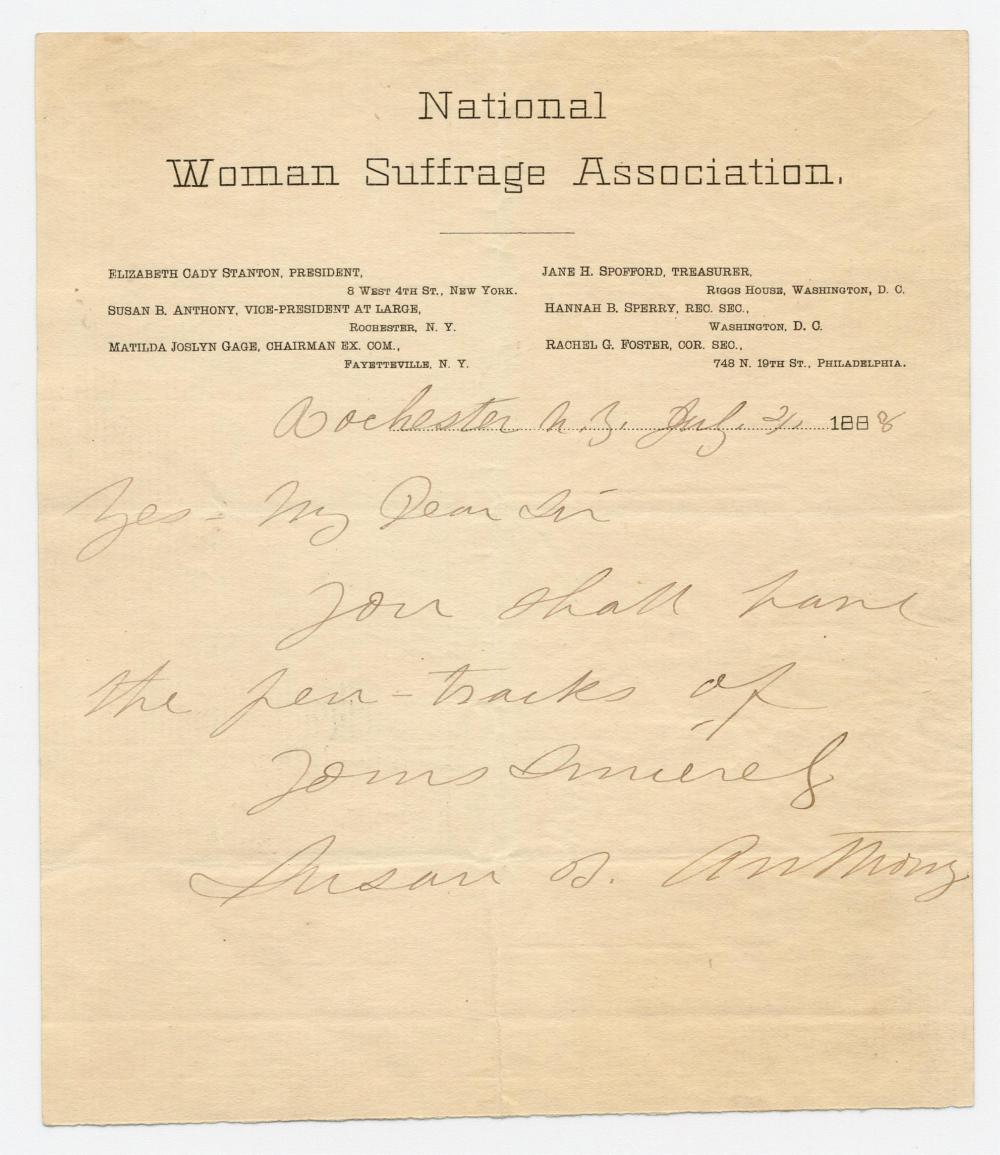 National
Woman Suffrage Association.
ELIZABETH CADY STANTON, PRESIDENT,
8 WEST 4TH ST., NEW YORK.
SUSAN B. ANTHONY, VICE-PRESIDENT AT LARGE,
ROCHESTER, N. Y.
MATILDA JOSLYN GAGE, CHAIRMAN EX. COM.,
FAYETTEVILLE, N. Y.
JANE H. SPOFFORD, TREASURER,
RIGGS HOUSE, WASHINGTON, D. C.
HANNAH B. SPERRY, REC. SEC.,
WASHINGTON, D. C.
RACHEL G. FOSTER, COR. SEC.,
748 N. 19TH ST., PHILADELPHIA.
Rochester N. Y. July 1888
Yes - My Dear Sir
You shall have
the pen-tracks of
Yours Sincerely
Susan B. Anthony